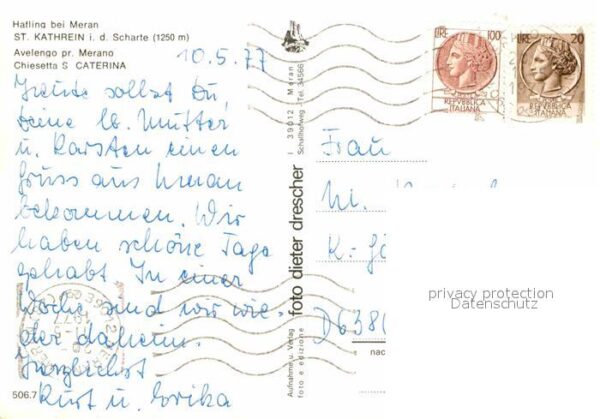 Hafling bei Meran
ST. KATHREIN i. d. Scharte (1250 m)
Avelengo pr. Merano
Chiesetta S. CATERINA
10.5.77
Heute sollst Du
Deine lb. Mutter
u. Karsten einen
Gruss aus Meran
bekommen. Wir
haben schöne Tage
gehabt. In einer
Woche sind wir wie-
der daheim.
Herzlichst
Kurt u. Erika
506.7
Aufnahme u. Verlag
foto e edizione
foto dieter drescher
I 39012 Meran
Schallhofweg Tel. 34566
LIRE 100
REPVBBLICA
ITALIANA
LIRE 20
REPVBBLICA
ITALIANA
Frau
M.
K.-
D 638
nac
privacy protection
Datenschutz